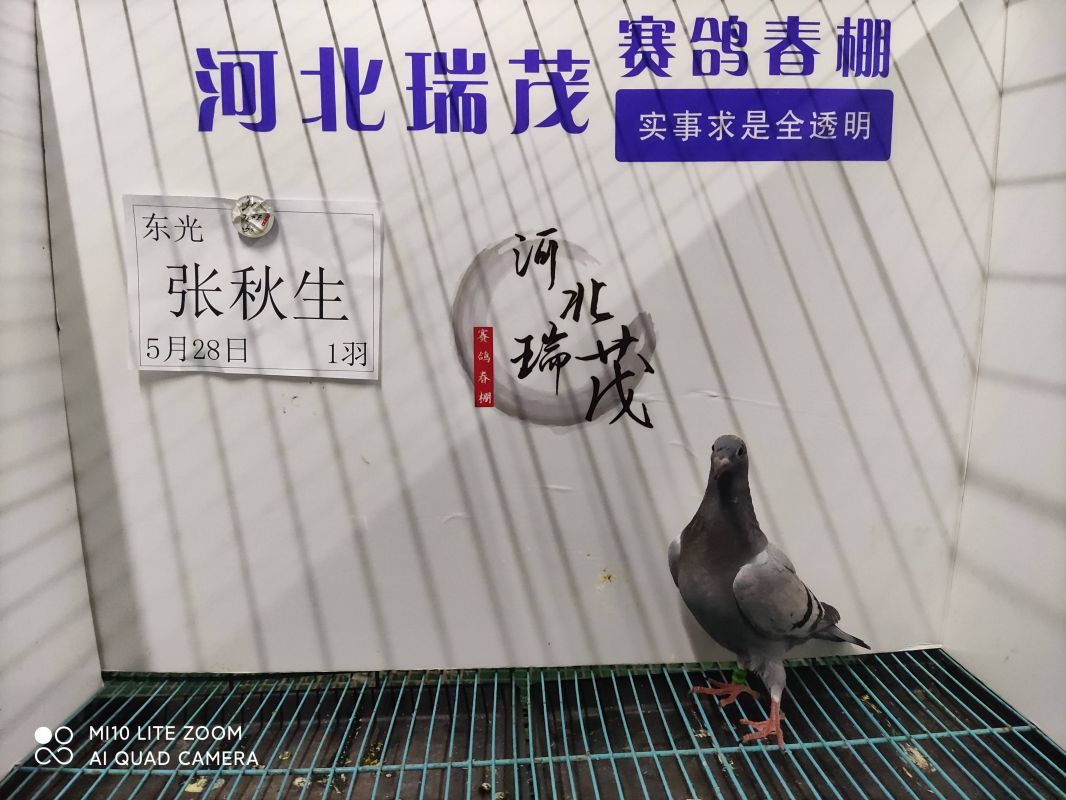 河北瑞茂
赛鸽春棚
实事求是全透明
东光
张秋生
5月28日 1羽
河
北
瑞茂
赛鸽春棚
MI10 LITE ZOOM
AI QUAD CAMERA